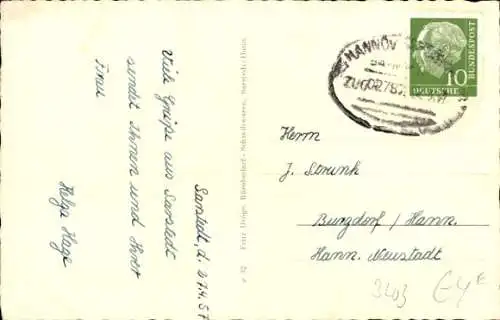 Viele Grüße aus Sarstedt
sendet Ihnen und Ihrer
Frau
Helga Hage
Sarstedt, d. 27.4.57
Fritz Dröge, Bürobedarf - Schreibwaren, Sarstedt/Hann.
HANNOV
ZUG 02787
10
DEUTSCHE
BUNDESPOST
Herrn
J. Strunk
Burgdorf / Hann.
Hann. Neustadt
3403